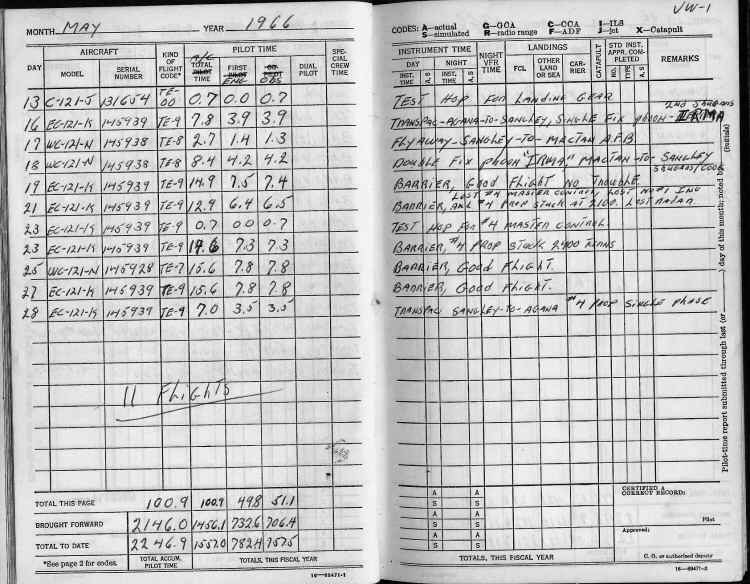 MONTH MAY YEAR 1966
DAY AIRCRAFT KIND OF FLIGHT CODE* PILOT TIME SPECIAL CREW TIME
MODEL SERIAL NUMBER A/C TOTAL PILOT TIME FIRST PILOT ENG CO-PILOT OBS DUAL PILOT
13 C-121-J 131654 TE-00 0.7 0.0 0.7
16 EC-121-K 145939 TE-9 7.8 3.9 3.9
17 WC-121-N 145938 TE-8 2.7 1.4 1.3
18 WC-121-N 145938 TE-8 8.4 4.2 4.2
19 EC-121-K 145939 TE-9 14.9 7.5 7.4
21 EC-121-K 145939 TE-9 12.9 6.4 6.5
23 EC-121-K 145939 TE-9 0.7 0.0 0.7
23 EC-121-K 145939 TE-9 14.6 7.3 7.3
25 WC-121-N 145928 TE-7 15.6 7.8 7.8
27 EC-121-K 145939 TE-9 15.6 7.8 7.8
28 EC-121-K 145939 TE-9 7.0 3.5 3.5
11 Flights
TOTAL THIS PAGE 100.9 100.9 49.8 51.1
BROUGHT FORWARD 2146.0 1456.1 732.6 706.4
TOTAL TO DATE 2246.9 1557.0 782.4 757.5
*See page 2 for codes. TOTAL ACCUM. PILOT TIME TOTALS, THIS FISCAL YEAR
16—69471-1
VW-1
CODES: A—actual G—GCA C—CCA I—ILS
S—simulated R—radio range F—ADF J—jet X—Catapult
INSTRUMENT TIME NIGHT VFR TIME LANDINGS CATAPULT STD INST. APPR. COMPLETED REMARKS
DAY NIGHT FCL OTHER LAND OR SEA CARRIER NO. TYPE A.S
INST. TIME A.S INST. TIME A.S
TEST HOP FOR LANDING GEAR
TRANSPAC-AGANA-TO-SANGLEY, SINGLE FIX PHOON- IRMA
FLYAWAY-SANGLEY-TO-MACTAN A.F.B
DOUBLE FIX PHOON "IRMA" MACTAN-TO-SANGLEY
BARRIER, GOOD FLIGHT NO TROUBLE.
LOST #4 MASTER CONTROL, LOST NO#1 INV
BARRIER, #4 PROP STUCK AT 2100. LOST RADAR
TEST HOP FOR #4 MASTER CONTROL.
BARRIER, #4 PROP STUCK 2400 RPMS
BARRIER, GOOD FLIGHT.
BARRIER, GOOD FLIGHT.
TRANSPAC SANGLEY-TO-AGANA #4 PROP SINGLE PHASE
Pilot-time report submitted through last (or ) day of this month; noted by (initials)
A A CERTIFIED A CORRECT RECORD:
S S
A A Pilot
S S Approved:
A A
S S
TOTALS, THIS FISCAL YEAR C. O. or authorized deputy
16—69471-2